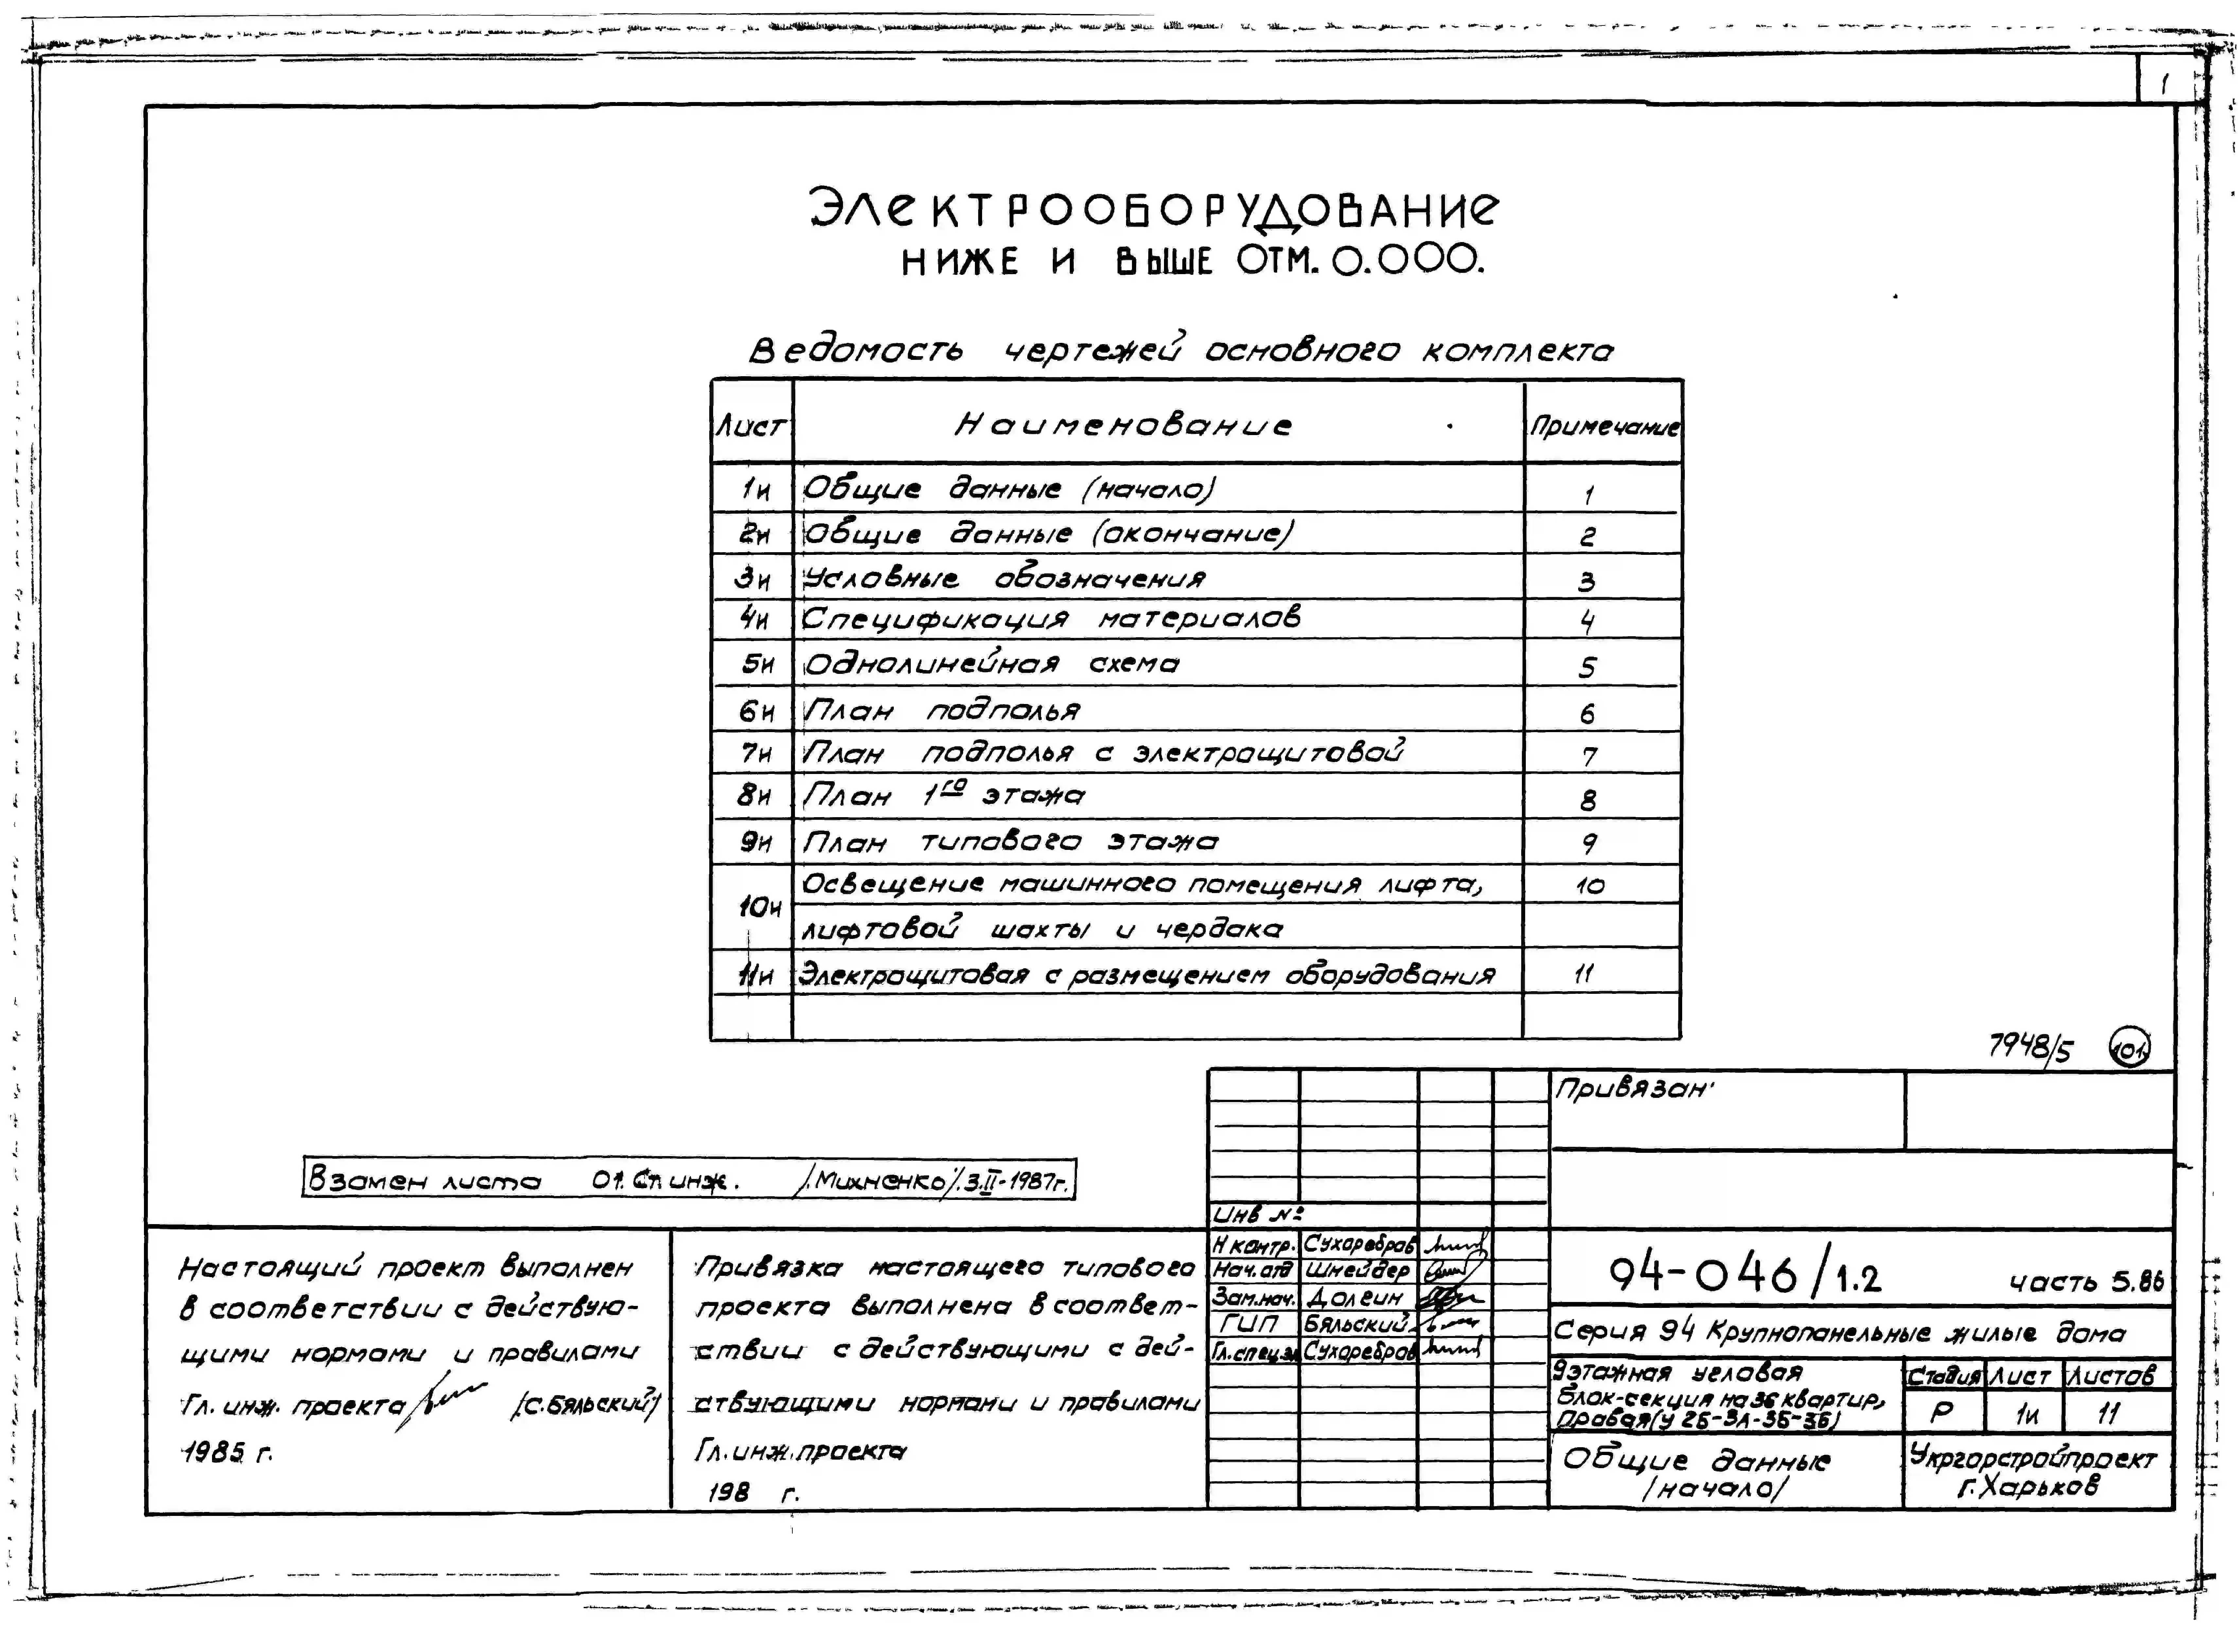 1
ЭЛЕКТРООБОРУДОВАНИЕ
НИЖЕ И ВЫШЕ ОТМ. 0.000.
Ведомость чертежей основного комплекта
Лист Наименование Примечание
1и Общие данные (начало) 1
2и Общие данные (окончание) 2
3и Условные обозначения 3
4и Спецификация материалов 4
5и Однолинейная схема 5
6и План подполья 6
7и План подполья с электрощитовой 7
8и План 1го этажа 8
9и План типового этажа 9
10и Освещение машинного помещения лифта, 10
лифтовой шахты и чердака
11и Электрощитовая с размещением оборудования 11
7948/5 101
Привязан:
Взамен листа 01. Ст. инж. /Михненко/. 3.II-1987г.
Инв №
Настоящий проект выполнен
в соответствии с действую-
щими нормами и правилами
Гл. инж. проекта /С. Бяльский/
1985 г.
Привязка настоящего типового
проекта выполнена в соответ-
ствии с действующими с дей-
ствующими нормами и правилами
Гл. инж. проекта
198 г.
Н контр. Сухаребров
Нач. отд Шнейдер
Зам. нач. Долгин
ГИП Бяльский
Гл. спец. эл Сухаребров
94-046/1.2 часть 5.86
Серия 94 Крупнопанельные жилые дома
9этажная угловая
блок-секция на 36 квартир,
правая (У 2Б-3А-3Б-3Б)
Стадия Лист Листов
Р 1и 11
Общие данные
/начало/
Укргорстройпроект
г. Харьков